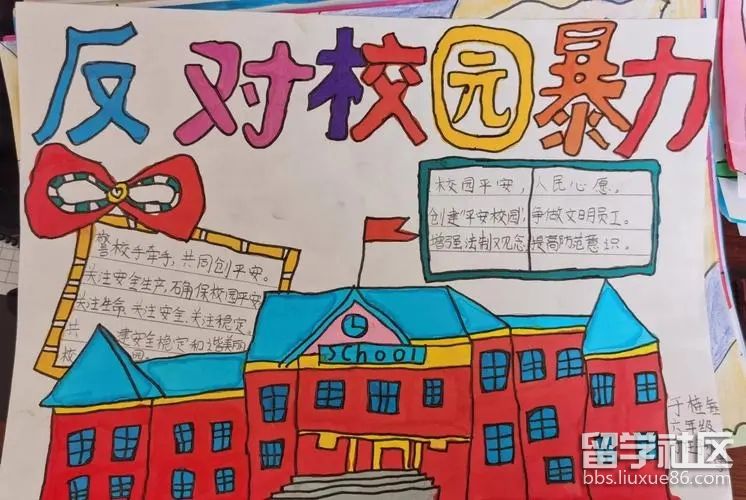 反对校园暴力
校园平安，人民心愿。
创建"平安校园"，争做文明员工。
增强法制观念 提高防范意识。
警校手牵手，共同创平安。
关注安全生产，确保校园平安
关注生命，关注安全，关注稳定。
共 建安全稳定和谐美丽
校 园
SCHOOL
六年级
留学社区
bbs.liuxue86.com